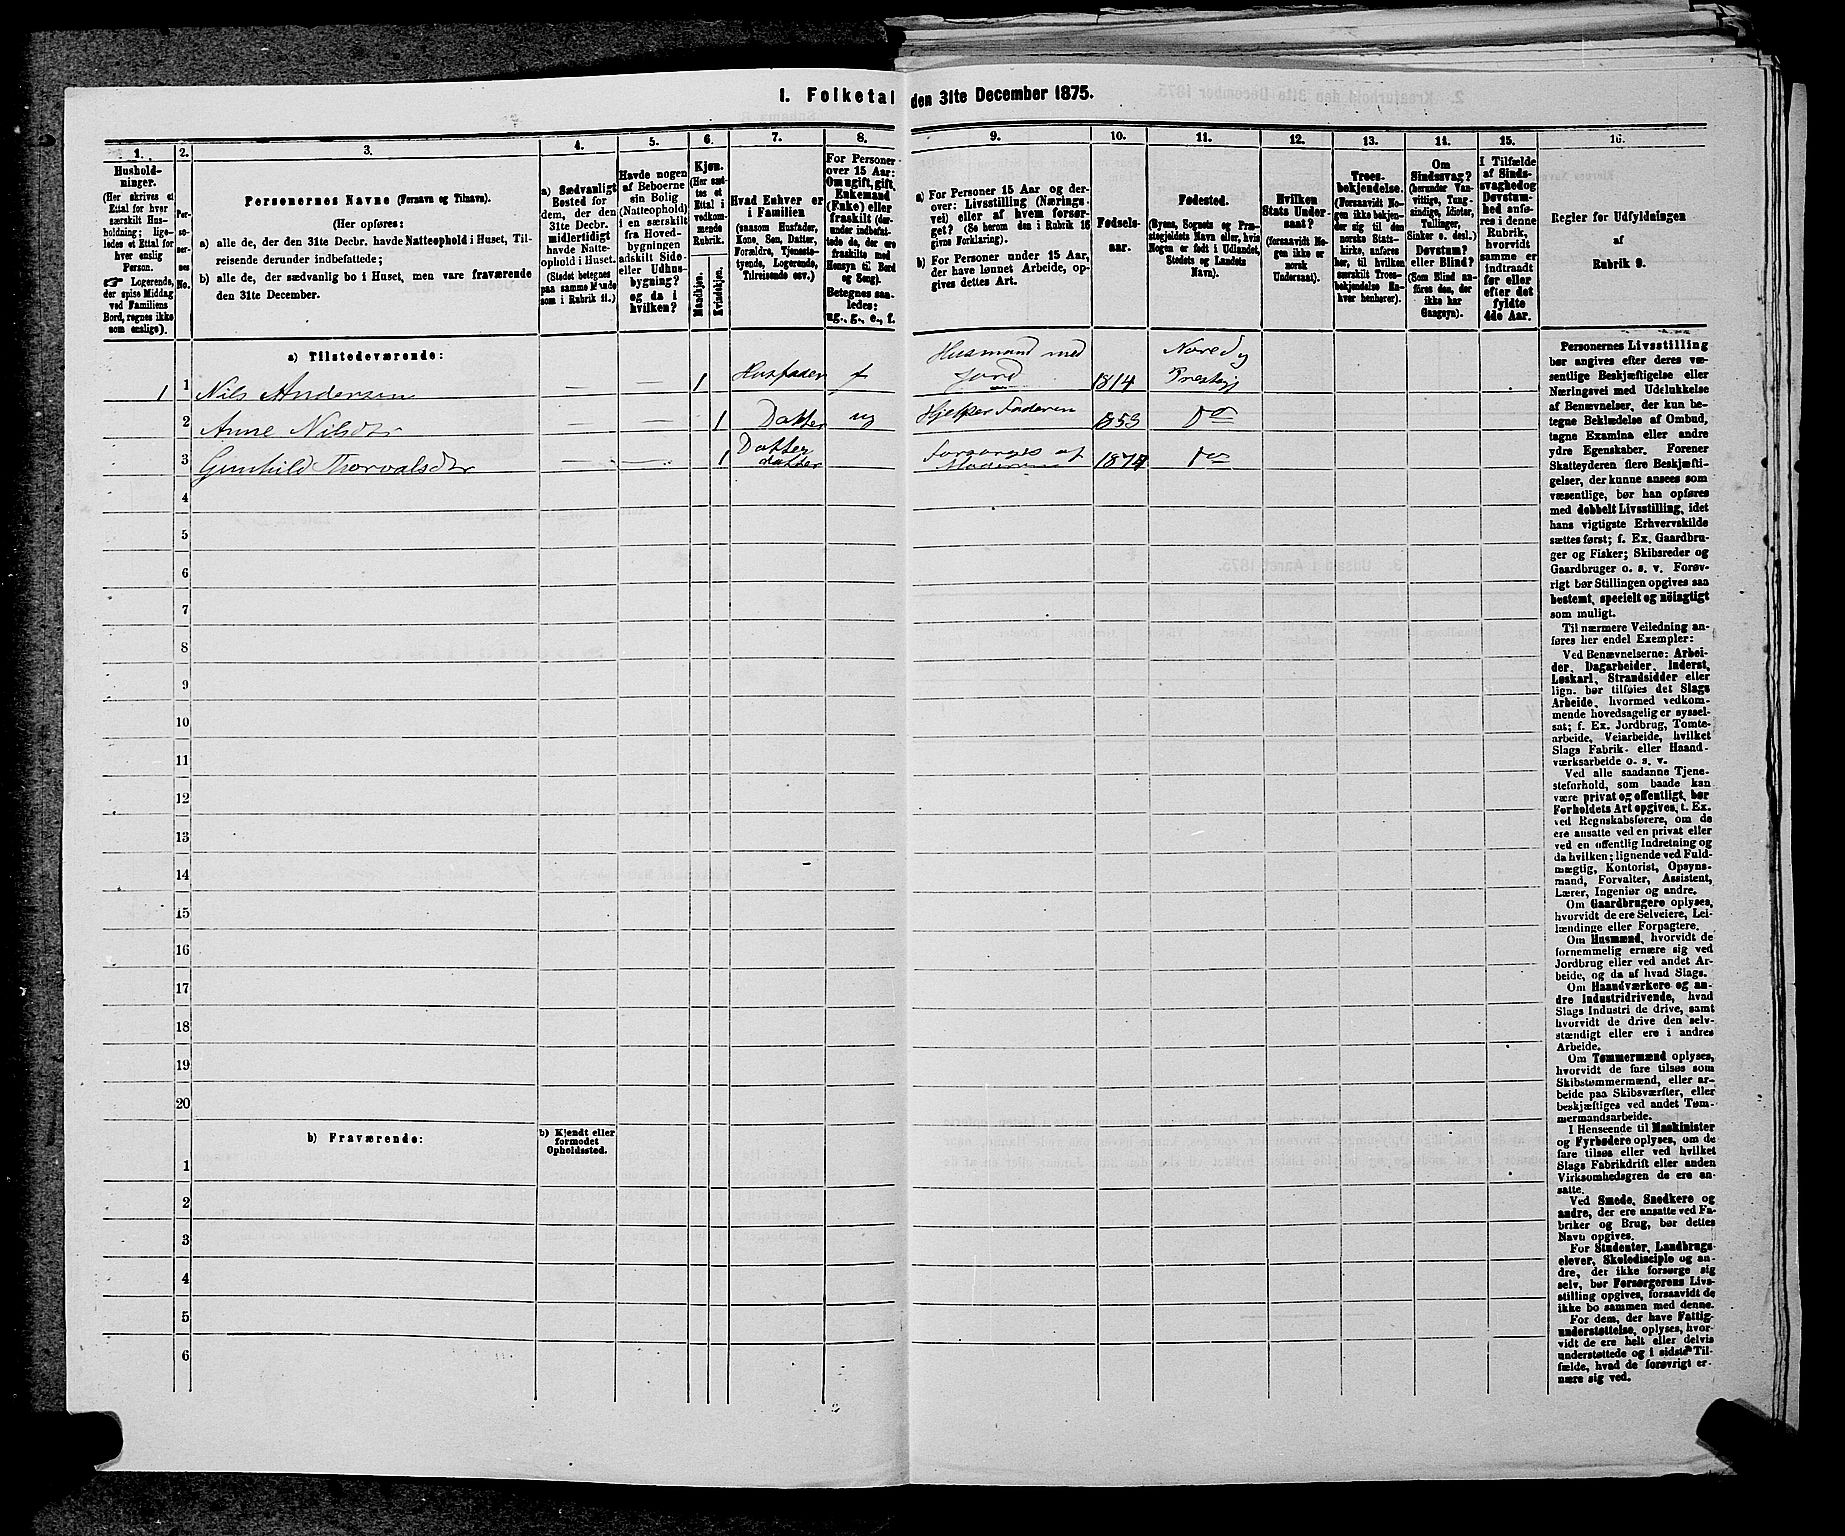 1. Folketal den 31te December 1875.
1.
Husholdninger.
(Her skrives et
Ettal for hver
særskilt Husholdning;
ligeledes et Ettal for
hver enslig
Person.
Logerende,
der spise Middag
ved Familiens
Bord, regnes ikke
som enslige).
2.
Personernes
No.
3.
Personernes Navne (Fornavn og Tilnavn).
(Her opføres:
a) alle de, der den 31te Decbr. havde Natteophold i Huset, Tilreisende derunder indbefattede;
b) alle de, der sædvanlig bo i Huset, men vare fraværende
den 31te December.
4.
a) Sædvanligt
Bosted for
dem, der den
31te Decbr.
midlertidigt
havde Natteophold i Huset.
(Stedet betegnes
paa samme Maade
som i Rubrik 11.)
5.
Havde nogen
af Beboerne
sin Bolig
(Natteophold)
i en særskilt
fra Hovedbygningen
adskilt Side-
eller Udhusbygning?
og da i
hvilken?
6.
Kjøn.
(Her sættes et
Ettal i
vedkommende
Rubrik.
Mandkjøn.
Kvindekjøn.
7.
Hvad Enhver er
i Familien
(saasom Husfader,
Kone, Søn, Datter,
Forældre, Tjenestetyende, Logerende,
Tilreisende osv.)
8.
For Personer
over 15 Aar:
Om ugift, gift,
Enkemand
(Enke) eller
fraskilt (derunder indbefattede de, der ere
fraskilte med
Hensyn til Bord
og Seng).
Betegnes saaledes:
ug., g., e., f.
9.
a) For Personer 15 Aar og derover: Livsstilling (Næringsvei) eller af hvem forsørget? (Se herom den i Rubrik 16
givne Forklaring).
b) For Personer under 15 Aar,
der have lønnet Arbeide, opgives dettes Art.
10.
Fødselsaar.
11.
Fødested.
(Byens, Sognets og Præstegjeldets Navn eller, hvis
Nogen er født i Udlandet,
Stedets og Landets
Navn).
12.
Hvilken
Stats Undersaat?
(forsaavidt Nogen ikke er
norsk
Undersaat).
13.
Troesbekjendelse.
(Forsaavidt Nogen ikke bekjender sig til den
norske Statskirke, anføres
her, til hvilken
særskilt Troesbekjendelse Enhver henhører).
14.
Om
Sindssvag?
(herunder Vanvittige, Tungsindige, Idioter,
Tullinger,
Sinker o. desl.)
Døvstum?
eller Blind?
(Som Blind anføres den, der
ikke har
Gangsyn).
15.
I Tilfælde
af Sindssvaghed og
Døvstumhed anføres i denne
Rubrik,
hvorvidt
samme er
indtraadt
før eller
efter det
fyldte
4de Aar.
16.
Regler for Udfyldningen
af
Rubrik 9.
a) Tilstedeværende:
1 1 Nils Andersen — — 1 Husfader f Husmand med Jord 1814 Prestegj
2 Anne Nilsdtr — — 1 Datter ug Hjelper Faderen 1853 Do
3 Gunhild Thorvalsdtr 1 Datter datter Forsørges af Moderen 1874 Do
4
5
6
7
8
9
10
11
12
13
14
15
16
17
18
19
20
b) Fraværende:
b) Kjendt eller
formodet
Opholdssted.
1
2
3
4
5
6
Personernes Livsstilling
bør angives efter deres væsentlige Beskjæftigelse eller
Næringsvei med Udelukkelse
af Benævnelser, der kun betegne Beklædelse af Ombud,
tagne Examina eller andre
ydre Egenskaber. Forener
Skatteyderen flere Beskjæftigelser, der kunne ansees som
væsentlige, bør han opføres
med dobbelt Livsstilling, idet
hans vigtigste Erhvervskilde
sættes først; f. Ex. Gaardbruger og Fisker; Skibsreder og
Gaardbruger o. s. v. Forøvrigt bør Stillingen opgives saa
bestemt, specielt og nöiagtigt
som muligt.
Til nærmere Veiledning anføres her endel Exempler:
Ved Benævnelserne: Arbeider, Dagarbeider, Inderst,
Løskarl, Strandsidder eller
lign. bør tilføies det Slags
Arbeide, hvormed vedkommende hovedsagelig er sysselsat; f. Ex. Jordbrug, Tomtearbeide, Veiarbeide, hvilket
Slags Fabrik- eller Haandværksarbeide o. s. v.
Ved alle saadanne Tjenesteforhold, som baade kan
være privat og offentligt, bør
Forholdets Art opgives, t. Ex.
ved Regnskabsførere, om de
ere ansatte ved en privat eller
ved en offentlig Indretning og
da hvilken; lignende ved Fuldmægtig, Kontorist, Opsynsmand, Forvalter, Assistent,
Lærer, Ingeniør og andre.
Om Gaardbrugere oplyses,
hvorvidt de ere Selveiere, Leilændinge eller Forpagtere.
Om Husmænd, hvorvidt de
fornemmelig ernære sig ved
Jordbrug eller ved andet Arbeide, og da af hvad Slags.
Om Haandværkere og andre Industridrivende, hvad
Slags Industri de drive, samt
hvorvidt de drive den selvstændigt eller ere i andres
Arbeide.
Om Tømmermænd oplyses,
hvorvidt de fare tilsøs som
Skibstømmermænd, eller arbeide paa Skibsværfter, eller
beskjæftiges ved andet Tømmermandsarbeide.
I Henseende til Maskinister
og Fyrbødere oplyses, om de
fare tilsøs eller ved hvilket
Slags Fabrikdrift eller anden
Virksomhedsgren de ere ansatte.
Ved Smede, Snedkere og
andre, der ere ansatte ved Fabriker og Brug, bør dettes
Navn opgives.
For Studenter, Landbrugselever, Skoledisciple og andre, der ikke forsørge sig
selv, bør Forsørgerens Livsstilling opgives, forsaavidt de
ikke bo sammen med denne.
For dem, der have Fattigunderstøttelse, oplyses, hvorvidt de ere helt eller delvis
understøttede og i sidste Tilfælde, hvad de forøvrigt ernære sig ved.